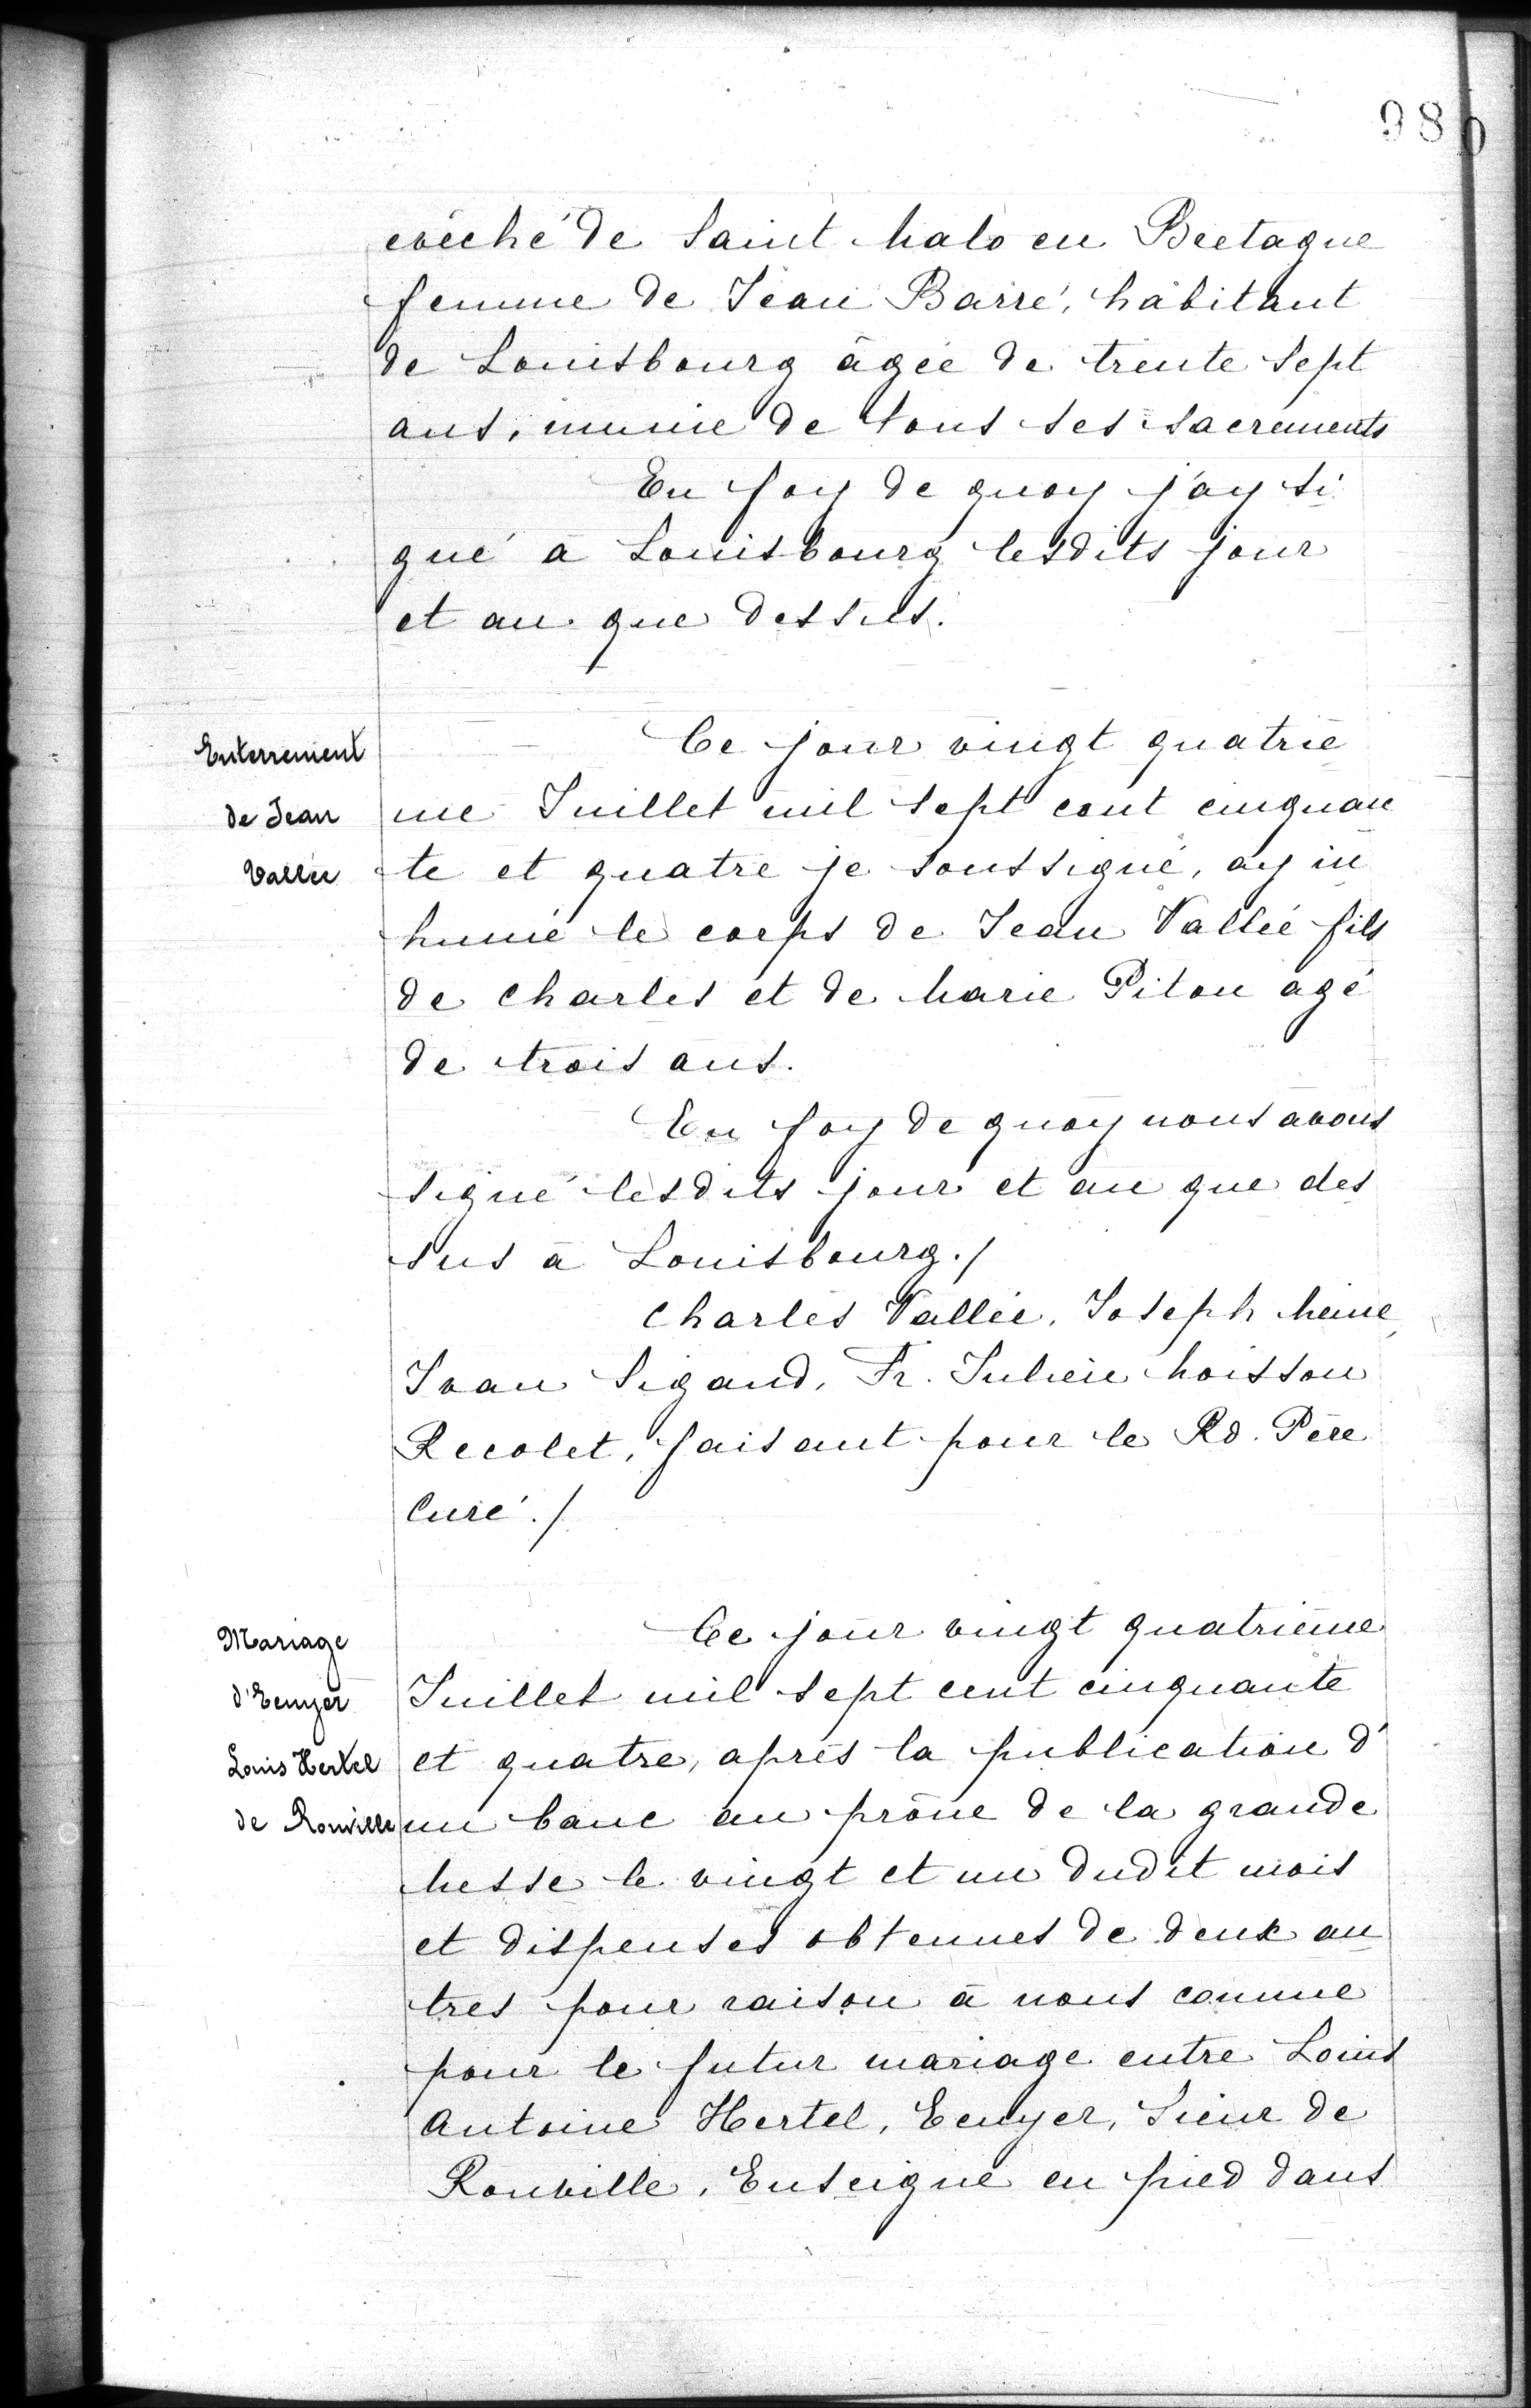 98
evêché de Saint Malo en Bretagne
femme de Jean Barré, habitant
de Louisbourg âgée de trente sept
ans, munie de tous ses sacrements
En foy de quoy j'ay si
gné à Louisbourg lesdits jour
et an que dessus.
Enterrement
de Jean
Vallée
Ce jour vingt quatriè
me Juillet mil sept cent cinquan
te et quatre je soussigné, ay in
humé le corps de Jean Vallée fils
de Charles et de Marie Pitou agé
de trois ans.
En foy de quoy nous avons
signé lesdits jour et an que des
sus à Louisbourg./
Charles Vallée, Joseph
Jean Sigaud, Fr. Julien Moisson
Recolet, faisant pour le Rd. Père
Curé./
Mariage
d'Ecuyer
Louis Hertel
de Rouville
Ce jour vingt quatrième
Juillet mil sept cent cinquante
et quatre, après la publication d'
un banc au prône de la grande
Messe le vingt et un dudit mois
et dispenses obtenues de deux au
tres pour raison à nous connue
pour le futur mariage entre Louis
Antoine Hertel, Ecuyer, Sieur de
Rouville, Enseigne en pied dans